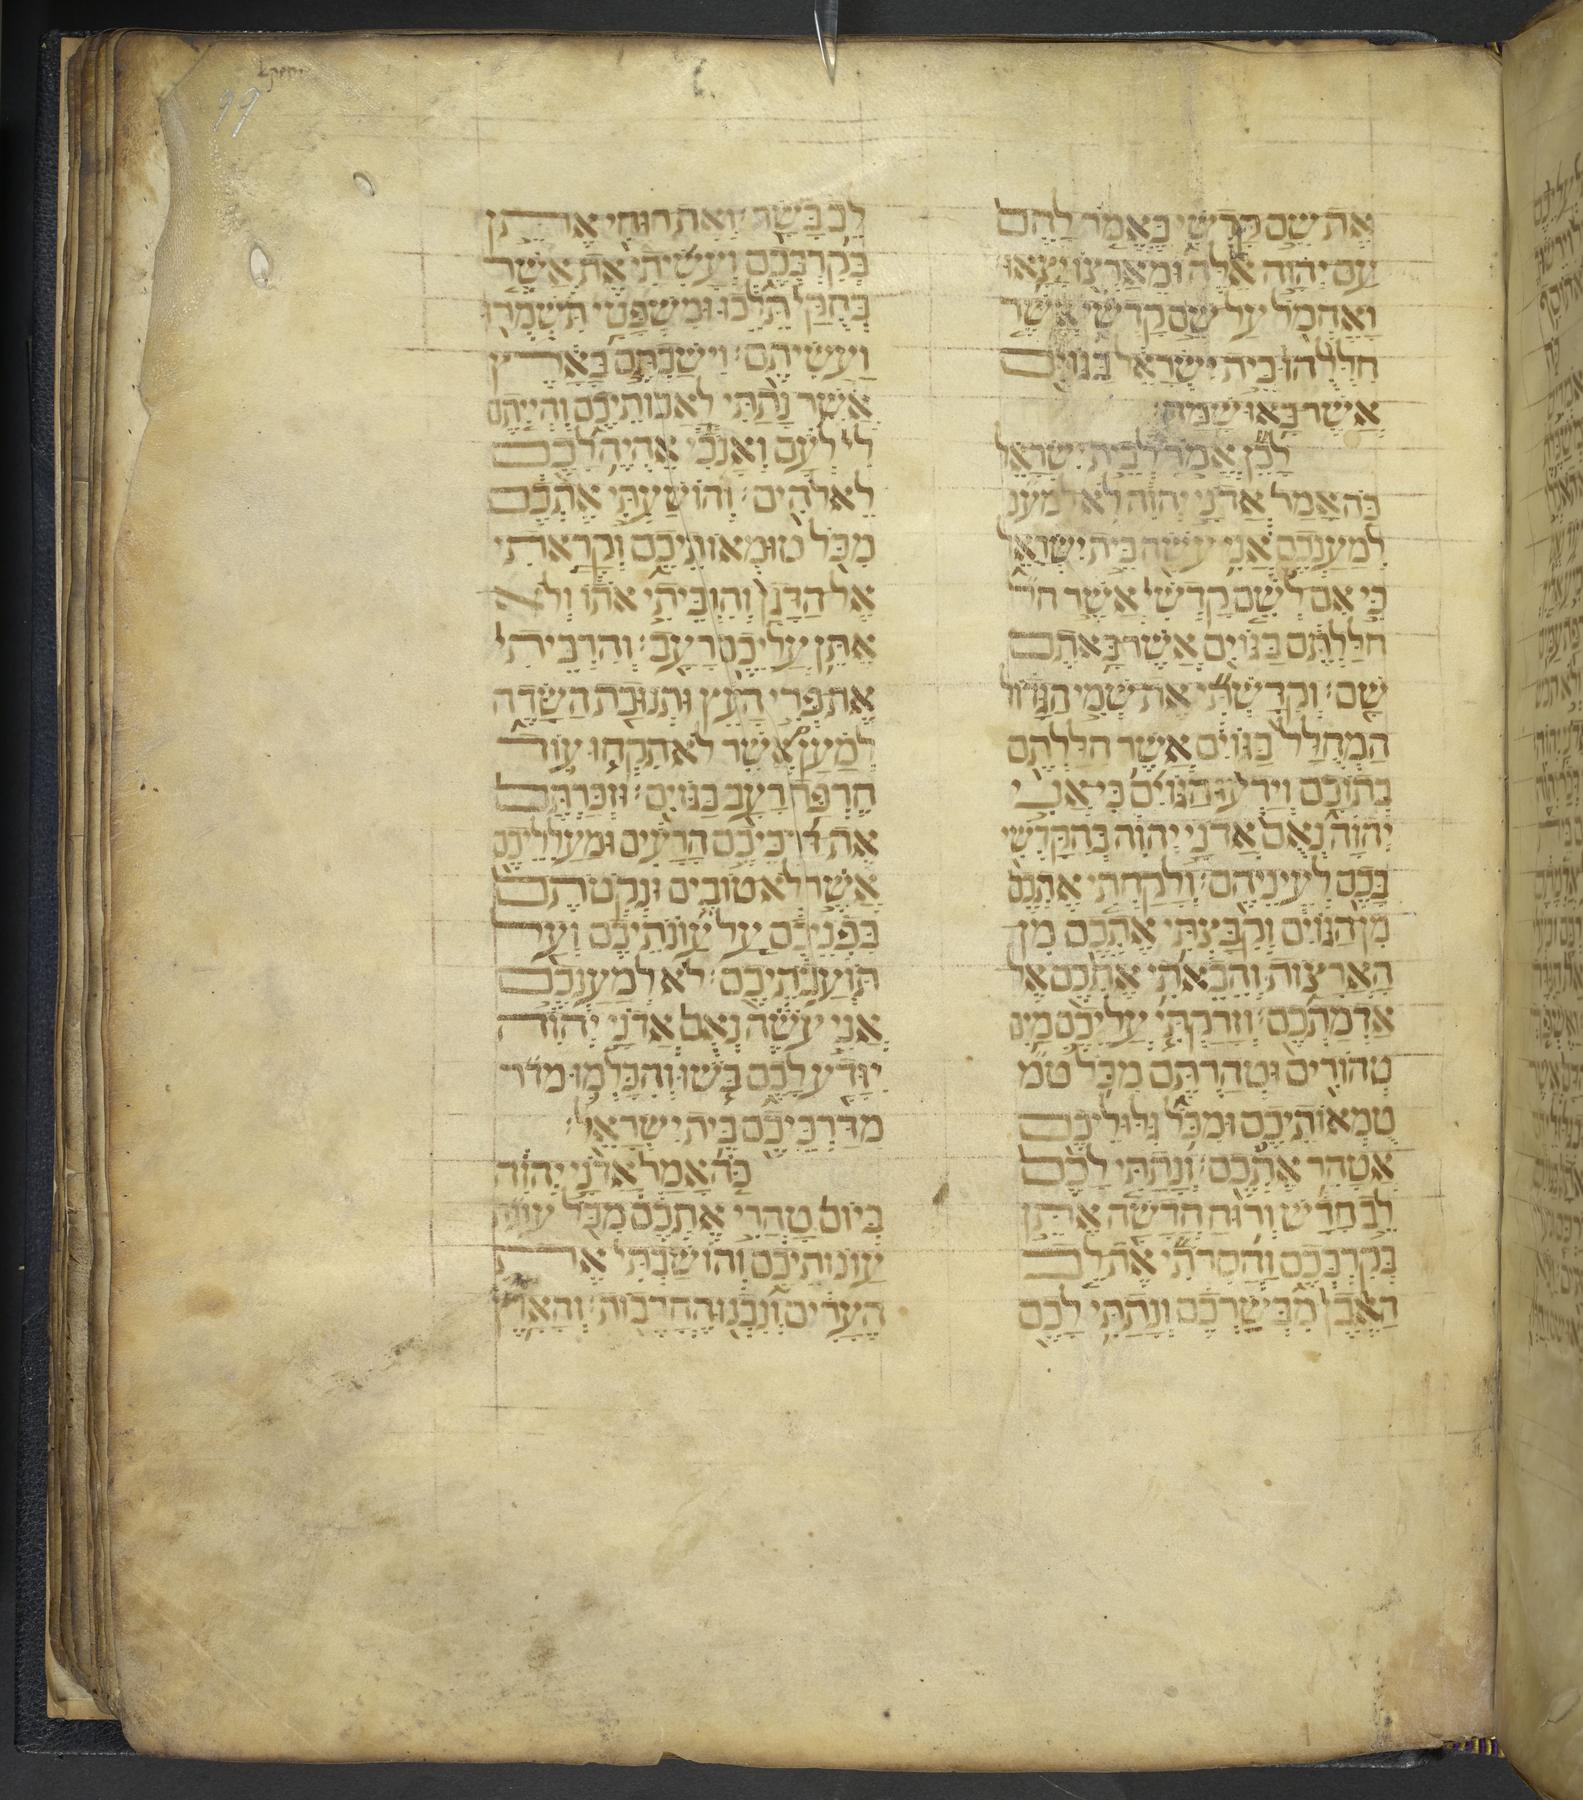 אֶת שֵׁם קָדְשִׁי בֶּאֱמֹר לָהֶם
עַם יְהוָה אֵלֶּה וּמֵאַרְצוֹ יָצָאוּ
וָאֶחְמֹל עַל שֵׁם קָדְשִׁי אֲשֶׁר
חִלְּלֻהוּ בֵּית יִשְׂרָאֵל בַּגּוֹיִם
אֲשֶׁר בָּאוּ שָׁמָּה׃
לָכֵן אֱמֹר לְבֵית יִשְׂרָאֵל
כֹּה אָמַר אֲדֹנָי יְהוִה לֹא למענ
לְמַעַנְכֶם אֲנִי עֹשֶׂה בֵּית יִשְׂרָאֵל
כִּי אִם לְשֵׁם קָדְשִׁי אֲשֶׁר חל
חִלַּלְתֶּם בַּגּוֹיִם אֲשֶׁר בָּאתֶם
שָׁם׃ וְקִדַּשְׁתִּי אֶת שְׁמִי הַגָּדוֹל
הַמְחֻלָּל בַּגּוֹיִם אֲשֶׁר חִלַּלְתֶּם
בְּתוֹכָם וְיָדְעוּ הַגּוֹיִם כִּי אֲנִי
יְהוָה נְאֻם אֲדֹנָי יְהוִה בְּהִקָּדְשִׁי
בָכֶם לְעֵינֵיהֶם׃ וְלָקַחְתִּי אֶתְכֶם
מִן הַגּוֹיִם וְקִבַּצְתִּי אֶתְכֶם מִן
הָאֲרָצוֹת וְהֵבֵאתִי אֶתְכֶם אֶל
אַדְמַתְכֶם׃ וְזָרַקְתִּי עֲלֵיכֶם מַיִם
טְהוֹרִים וּטְהַרְתֶּם מִכֹּל טמ
טֻמְאוֹתֵיכֶם וּמִכָּל גִּלּוּלֵיכֶם
אֲטַהֵר אֶתְכֶם׃ וְנָתַתִּי לָכֶם
לֵב חָדָשׁ וְרוּחַ חֲדָשָׁה אֶתֵּן
בְּקִרְבְּכֶם וַהֲסִרֹתִי אֶת לֵב
הָאֶבֶן מִבְּשַׂרְכֶם וְנָתַתִּי לָכֶם
לֵב בָּשָׂר׃ וְאֶת רוּחִי אֶתֵּן
בְּקִרְבְּכֶם וְעָשִׂיתִי אֵת אֲשֶׁר
בְּחֻקַּי תֵּלֵכוּ וּמִשְׁפָּטַי תִּשְׁמְרוּ
וַעֲשִׂיתֶם׃ וִישַׁבְתֶּם בָּאָרֶץ
אֲשֶׁר נָתַתִּי לַאֲבוֹתֵיכֶם וִהְיִיתֶם
לִי לְעָם וְאָנֹכִי אֶהְיֶה לָכֶם
לֵאלֹהִים׃ וְהוֹשַׁעְתִּי אֶתְכֶם
מִכֹּל טוּמְאוֹתֵיכֶם וְקָרָאתִי
אֶל הַדָּגָן וְהִרְבֵּיתִי אֹתוֹ וְלֹא
אֶתֵּן עֲלֵיכֶם רָעָב׃ וְהִרְבֵּיתִי
אֶת פְּרִי הָעֵץ וּתְנוּבַת הַשָּׂדֶה
לְמַעַן אֲשֶׁר לֹא תִקְחוּ עוֹד
חֶרְפַּת רָעָב בַּגּוֹיִם׃ וּזְכַרְתֶּם
אֶת דַּרְכֵיכֶם הָרָעִים וּמַעַלְלֵיכֶם
אֲשֶׁר לֹא טוֹבִים וּנְקֹטֹתֶם
בִּפְנֵיכֶם עַל עֲוֹנֹתֵיכֶם וְעַל
תּוֹעֲבֹתֵיכֶם׃ לֹא לְמַעַנְכֶם
אֲנִי עֹשֶׂה נְאֻם אֲדֹנָי יְהוִה
יִוָּדַע לָכֶם בּוֹשׁוּ וְהִכָּלְמוּ מדר
מִדַּרְכֵיכֶם בֵּית יִשְׂרָאֵל׃
כֹּה אָמַר אֲדֹנָי יְהוִה
בְּיוֹם טַהֲרִי אֶתְכֶם מִכֹּל עונ
עֲוֹנוֹתֵיכֶם וְהוֹשַׁבְתִּי אֶת
הֶעָרִים וְנִבְנוּ הֶחֳרָבוֹת׃ וְהָאָרֶץ